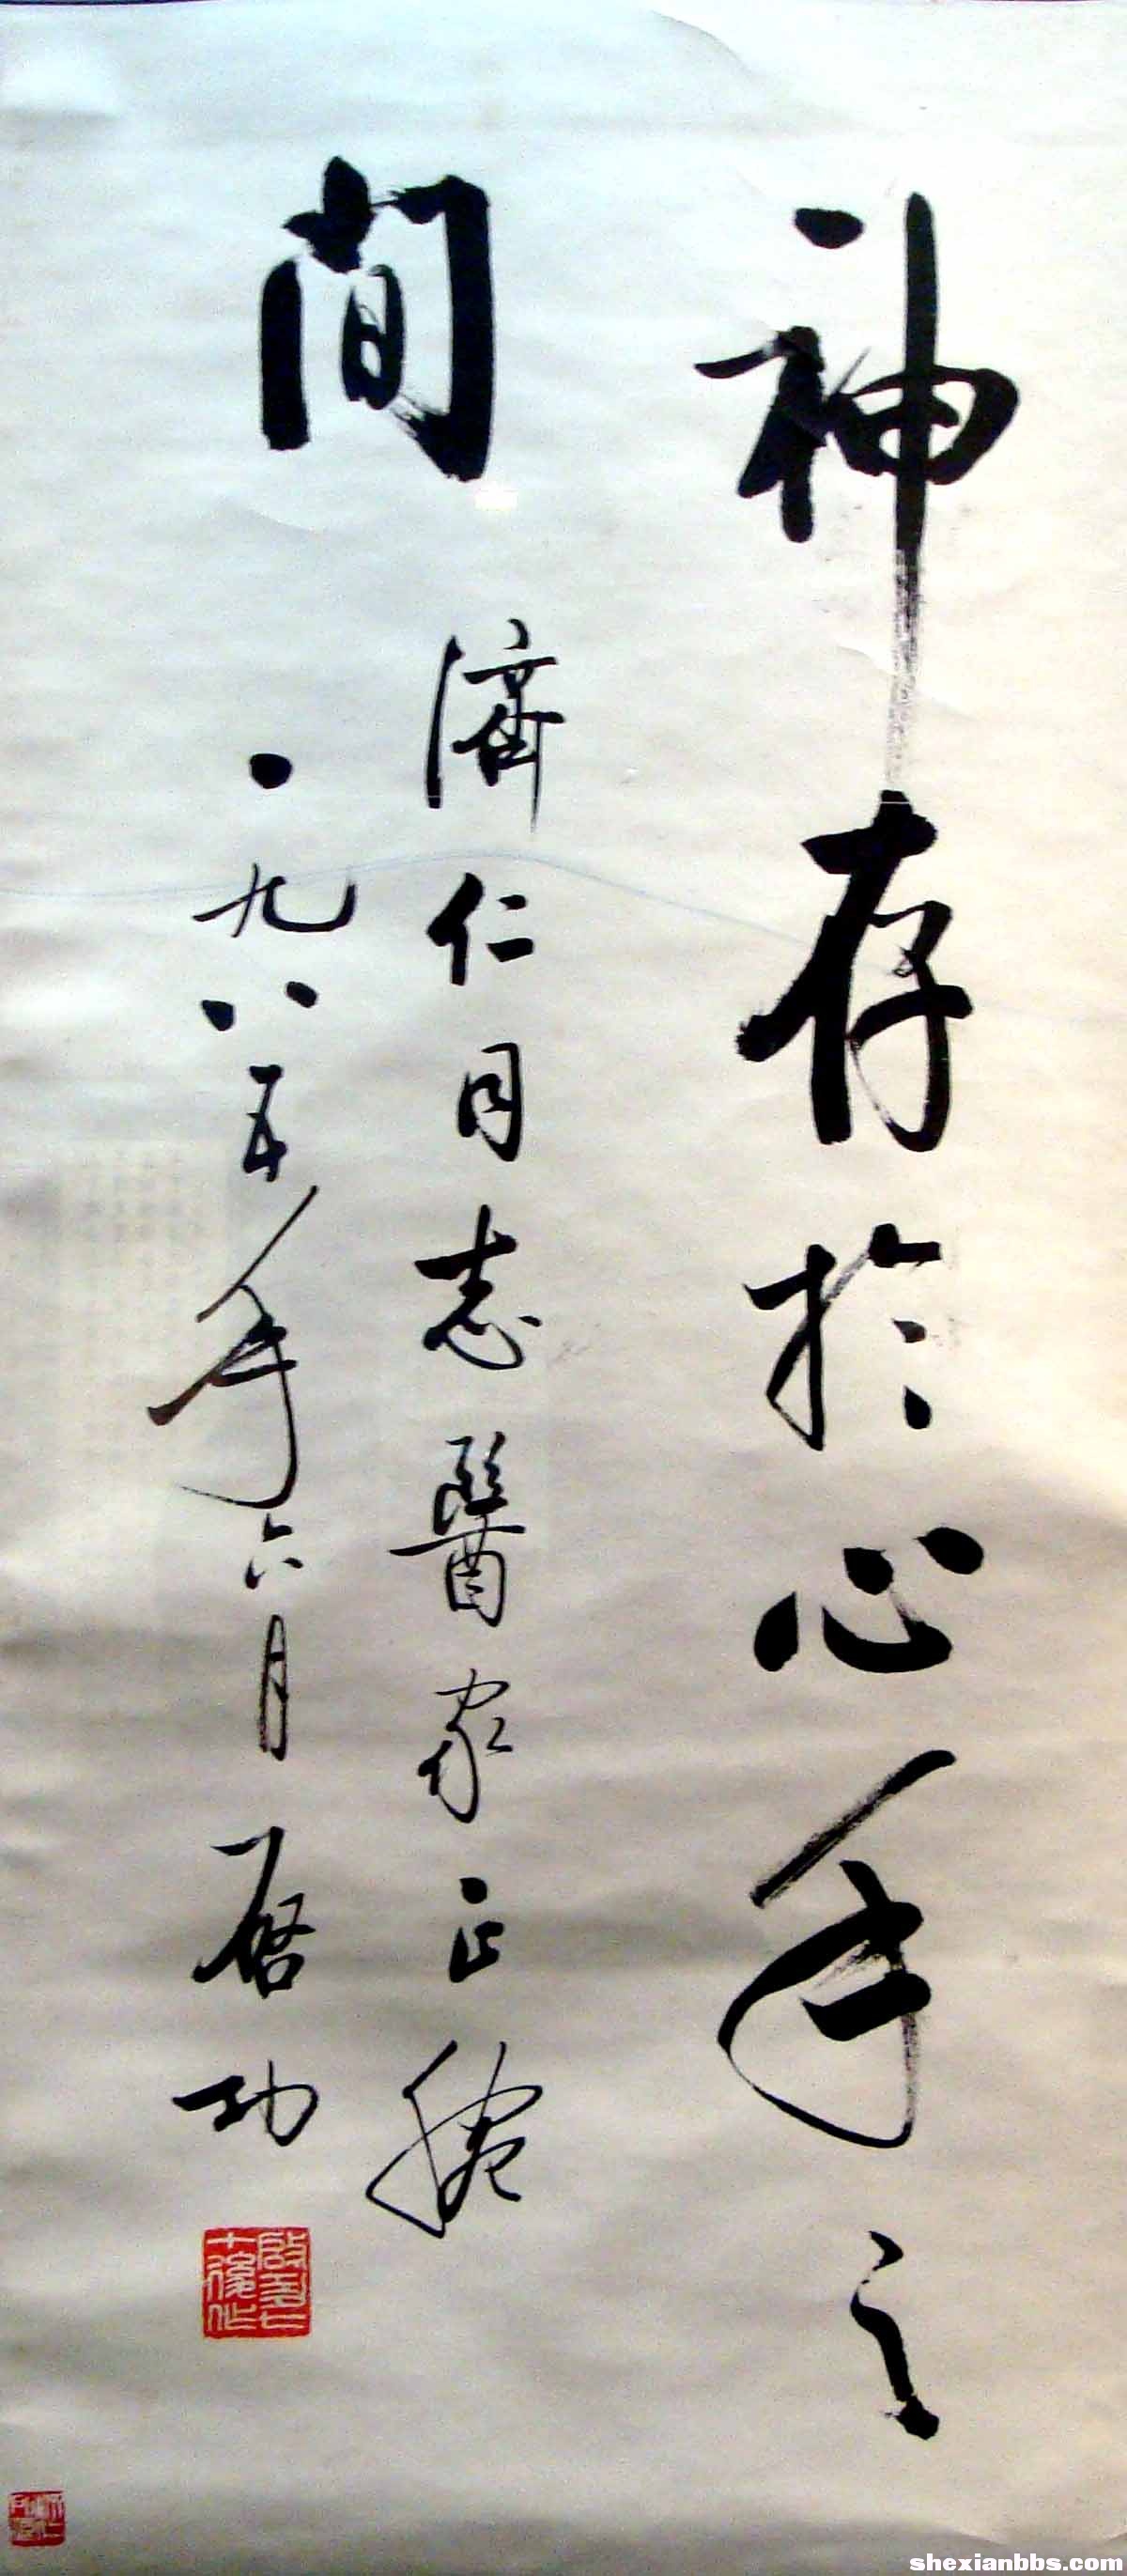 神存於心手之
間
濟仁同志醫家正腕
一九八五年六月 启功
shexianbbs.com